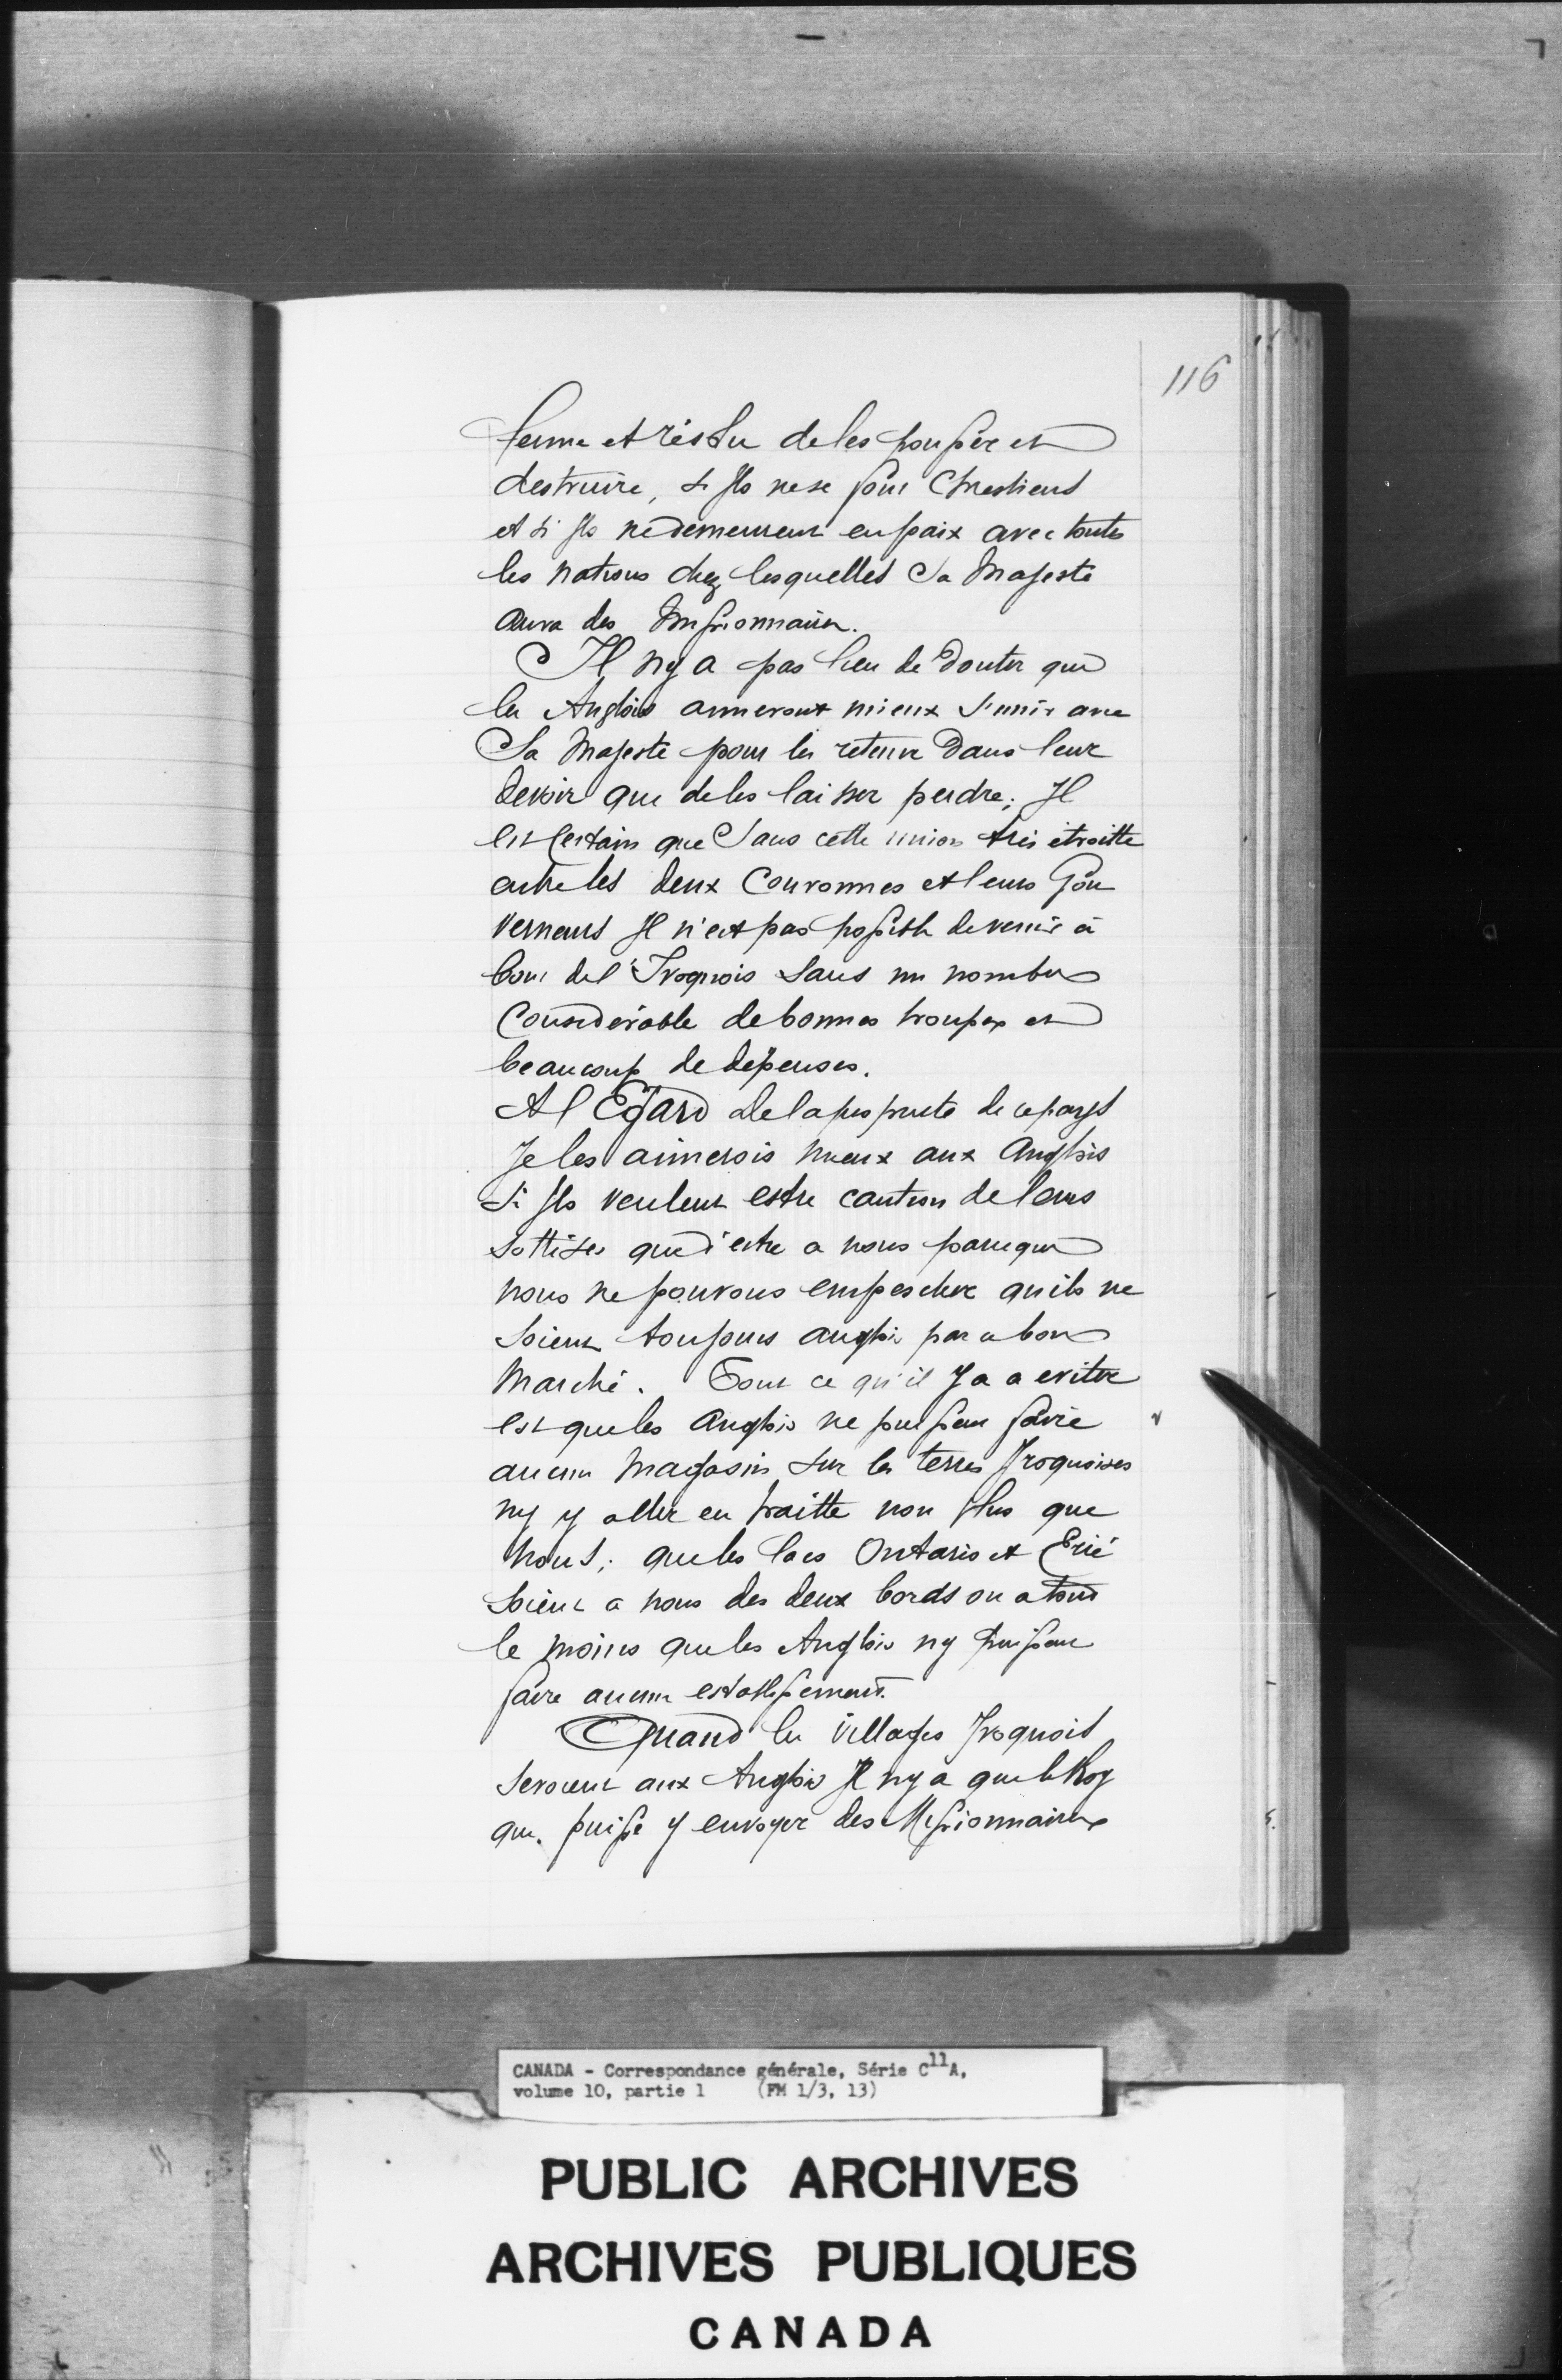 116
ferme et résolu de les pousser et
destruire, si Ils ne se font Chrestiens
et si Ils ne demeurent en paix avec toutes
les nations chez lesquelles Sa Majesté
aura des Missionnaires.
Il ny a pas lieu de Douter que
les Anglois aimeront mieux s'unir avec
Sa Majesté pour les retenir Dans leur
devoir que de les laisser perdre; Il
est Certain que Sans cette union très étroitte
entre les deux Couronnes et leurs Gou
verneurs Il n'est pas possible de venir à
bout de l'Iroquois sans un nombre
Considérable de bonnes troupes et
beaucoup de dépenses.
A l'Egard de la propriété de ce pays
Je les aimerois mieux aux Anglois
si Ils veulent estre caution de leurs
sottises que d'estre a nous parce que
nous ne pouvons empescher quils ne
soient toujours anglois par a bon
Marché. Tout ce qu'il y a a eviter
est que les Anglois ne puissent faire
aucun Magasin sur les terres Iroquoises
ny y aller en traitte non plus que
nous; que les lacs Ontario et Erié
soient a nous des deux bords ou a tout
le moins que les Anglois ny puissent
faire aucun establissement.
Quand les Villages Iroquois
seroient aux Anglois Il ny a que le Roy
qui puisse y envoyer des Missionnaires
CANADA - Correspondance générale, Série C11A,
volume 10, partie 1 (FM 1/3, 13)
PUBLIC ARCHIVES
ARCHIVES PUBLIQUES
CANADA